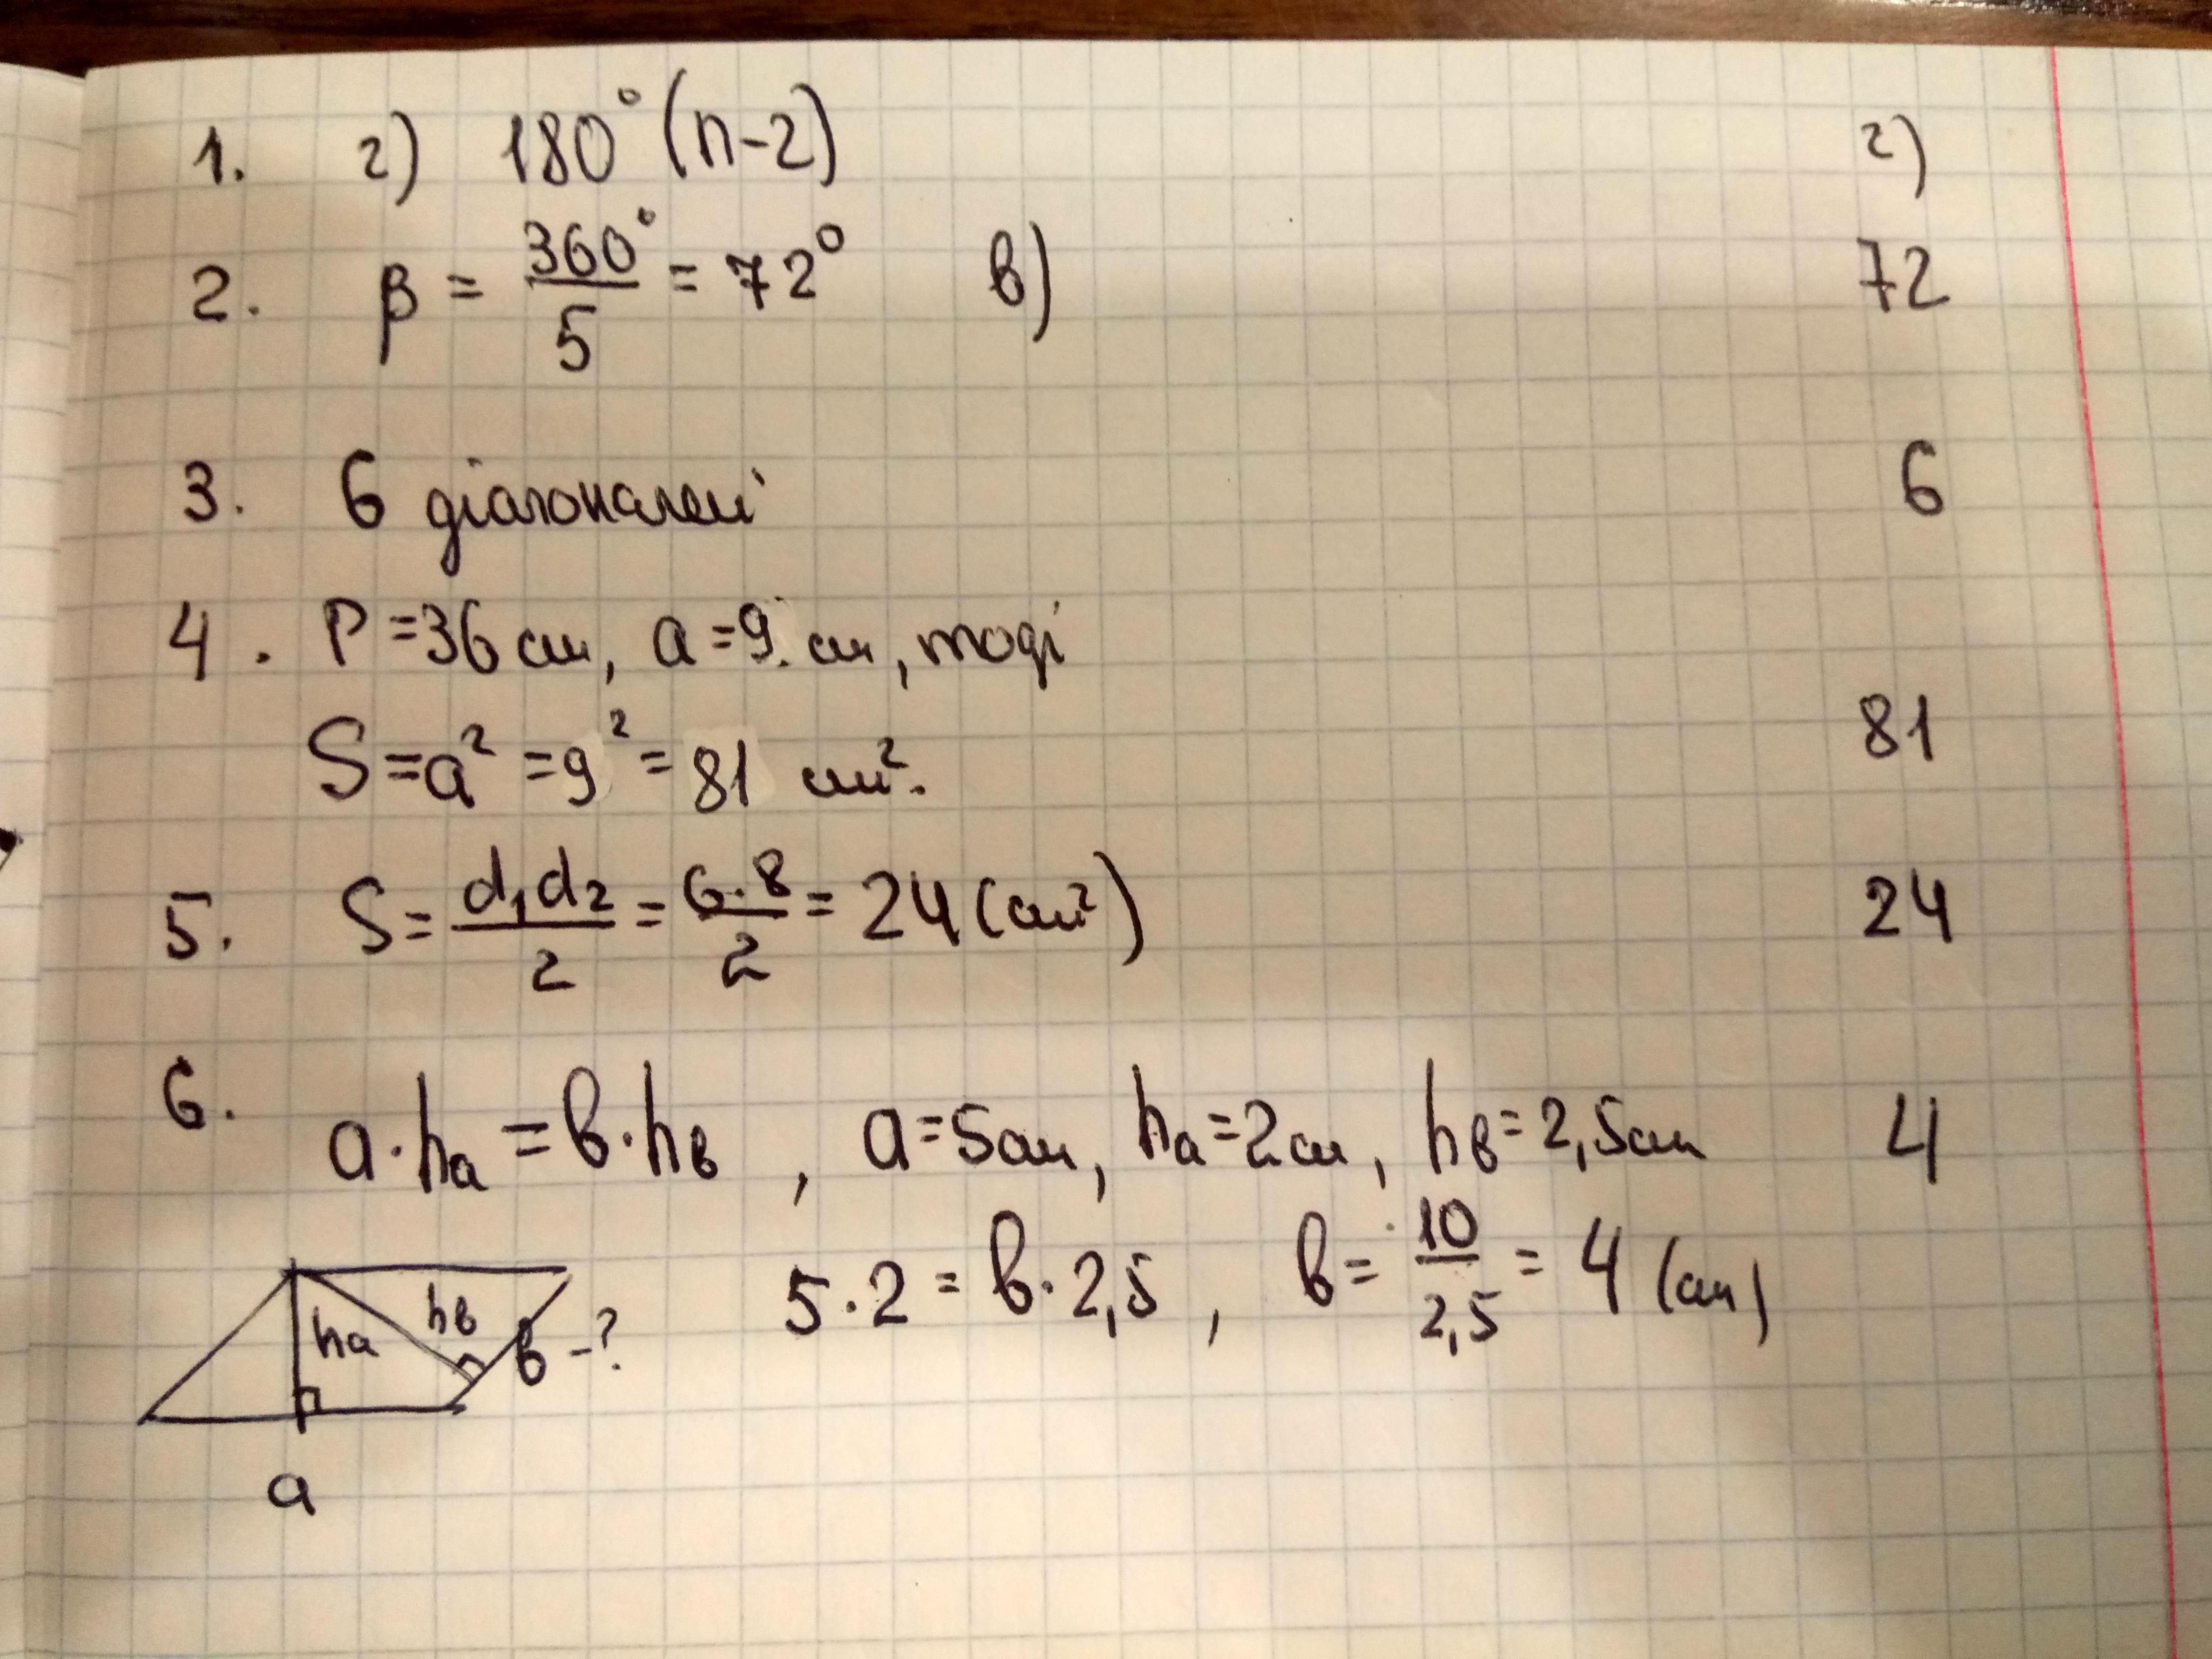 1. г) 180° (n-2) г)
2. β = 360°/5 = 72° в) 72
3. 6 діагоналей 6
4. P =36 см, a =9 см, тоді
S =a² =9² = 81 см². 81
5. S = d₁d₂/2 = 6·8/2 = 24 (см²) 24
6. a·hₐ = в·hв , a =5см, hₐ =2см, hв = 2,5см 4
5·2 = в·2,5 , в = 10/2,5 = 4 (см)
hₐ hв в -?
a